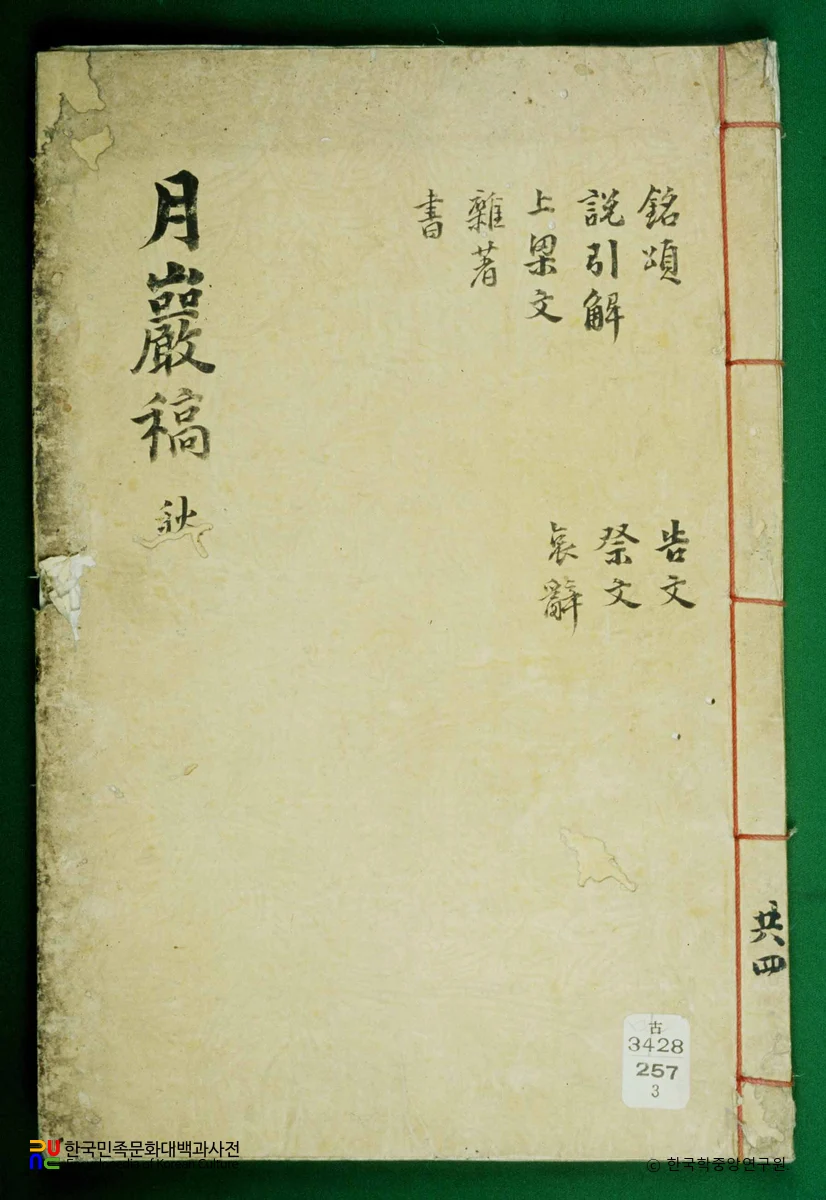 月巖稿 秋
銘頌
說引解
上梁文
雜著
書
告文
祭文
哀辭
共四
古
3428
257
3
한국민족문화대백과사전
© 한국학중앙연구원